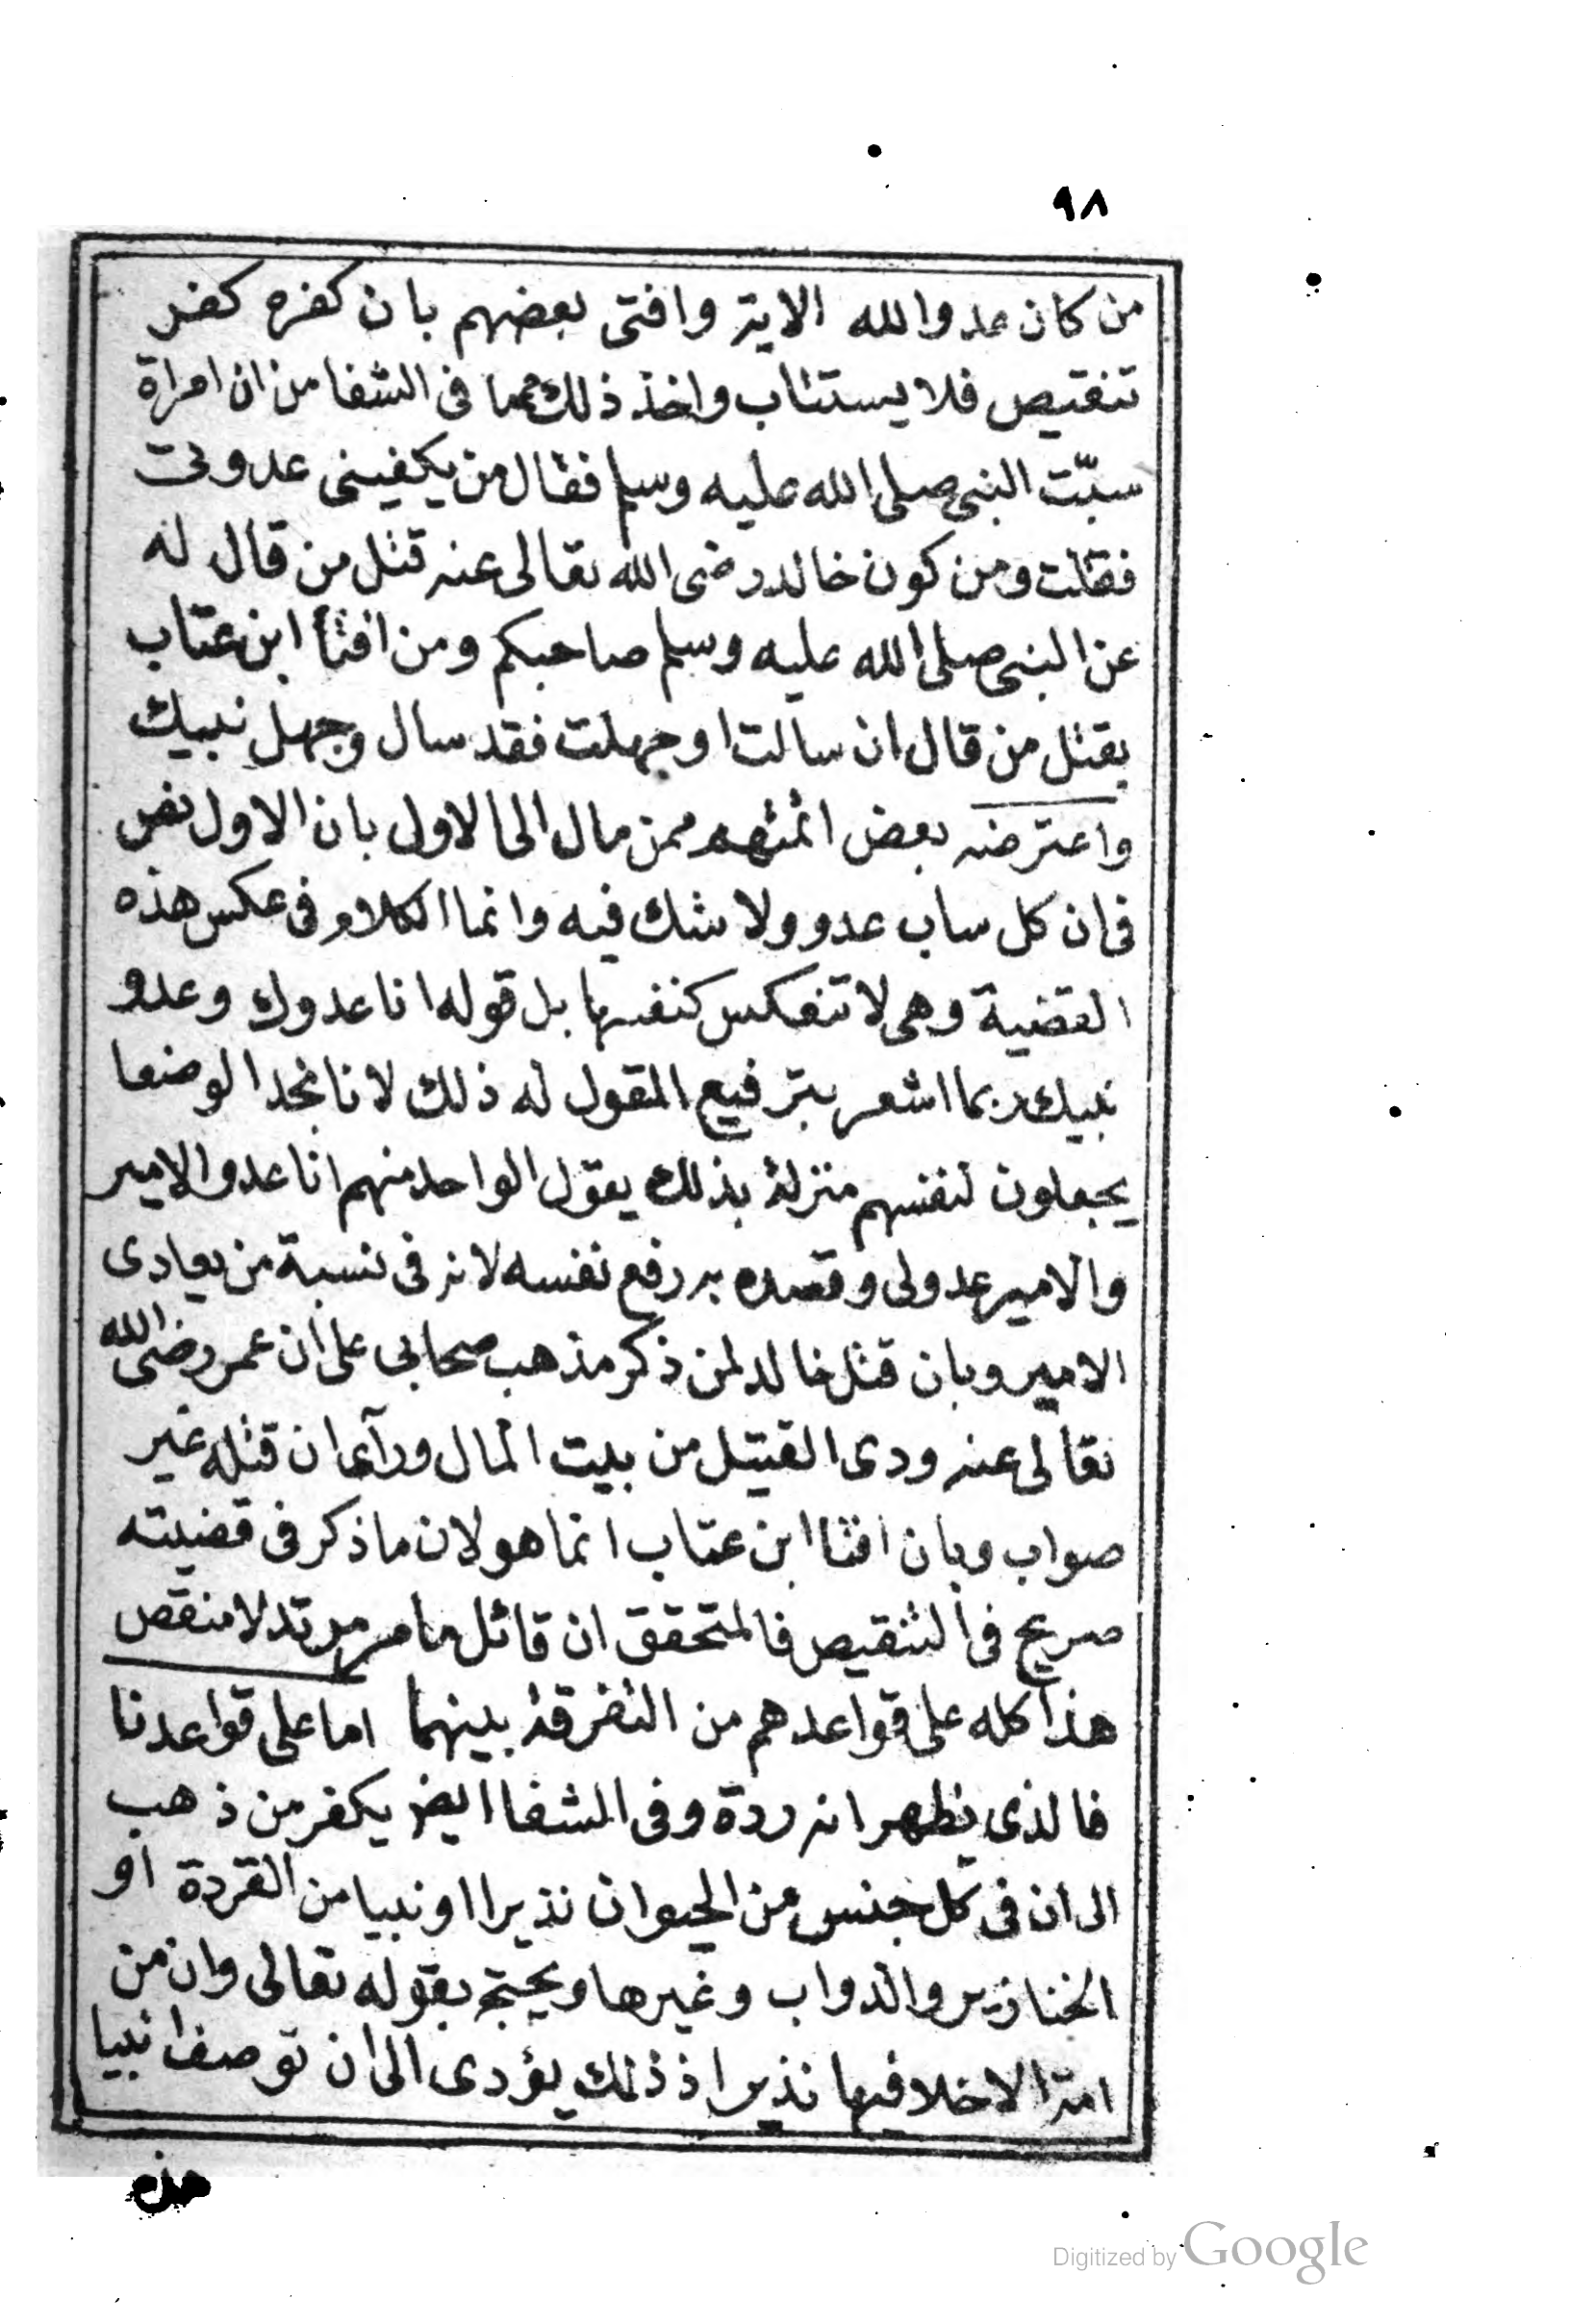 ٩٨
من كان عدوا لله الاية وافتى بعضهم بان كفره كفر
تنقيص فلا يستتاب واخذ ذلك مما فى الشفا من ان امراة
سبّت النبى صلى الله عليه وسلم فقال من يكفينى عدوتى
فقتلت ومن كون خالد رضى الله تعالى عنه قتل من قال له
عن النبى صلى الله عليه وسلم صاحبكم ومن افتأ ابن عتاب
بقتل من قال ان سالت او جهلت فقد سال وجهل نبيك
واعترضه بعض ائمتهم ممن مال الى الاول بان الاول نص
فى ان كل ساب عدو ولا شك فيه وانما الكلام فى عكس هذه
القضية وهى لا تنعكس كنفسها بل قوله انا عدوك وعدو
نبيك ربما اشعر بترفيع المقول له ذلك لانا نجد الوضعا
يجعلون لنفسهم منزلة بذلك يقول الواحد منهم انا عدو الامير
والامير عدولى وقصده به رفع نفسه لانه فى نسبة من يعادى
الامير وبان قتل خالد لمن ذكر مذهب صحابى على ان عمر رضى الله
تعالى عنه ودى القتيل من بيت المال ورآى ان قتله غير
صواب وبان افتا ابن عتاب انما هو لان ما ذكر فى قضيته
صريح فى التنقيص فالمتحقق ان قائل ما مر مرتد لا منقص
هذا كله على قواعدهم من التفرقة بينهما اما على قواعدنا
فالذى يظهر انه ردة وفى الشفا ايض يكفر من ذهب
الى ان فى كل جنس من الحيوان نذيرا او نبيا من القردة او
الخنازير والدواب وغيرها ويحتج بقوله تعالى وان من
امة الا خلا فيها نذير اذ ذلك يؤدى الى ان توصف انبيا
هذه
Digitized by Google